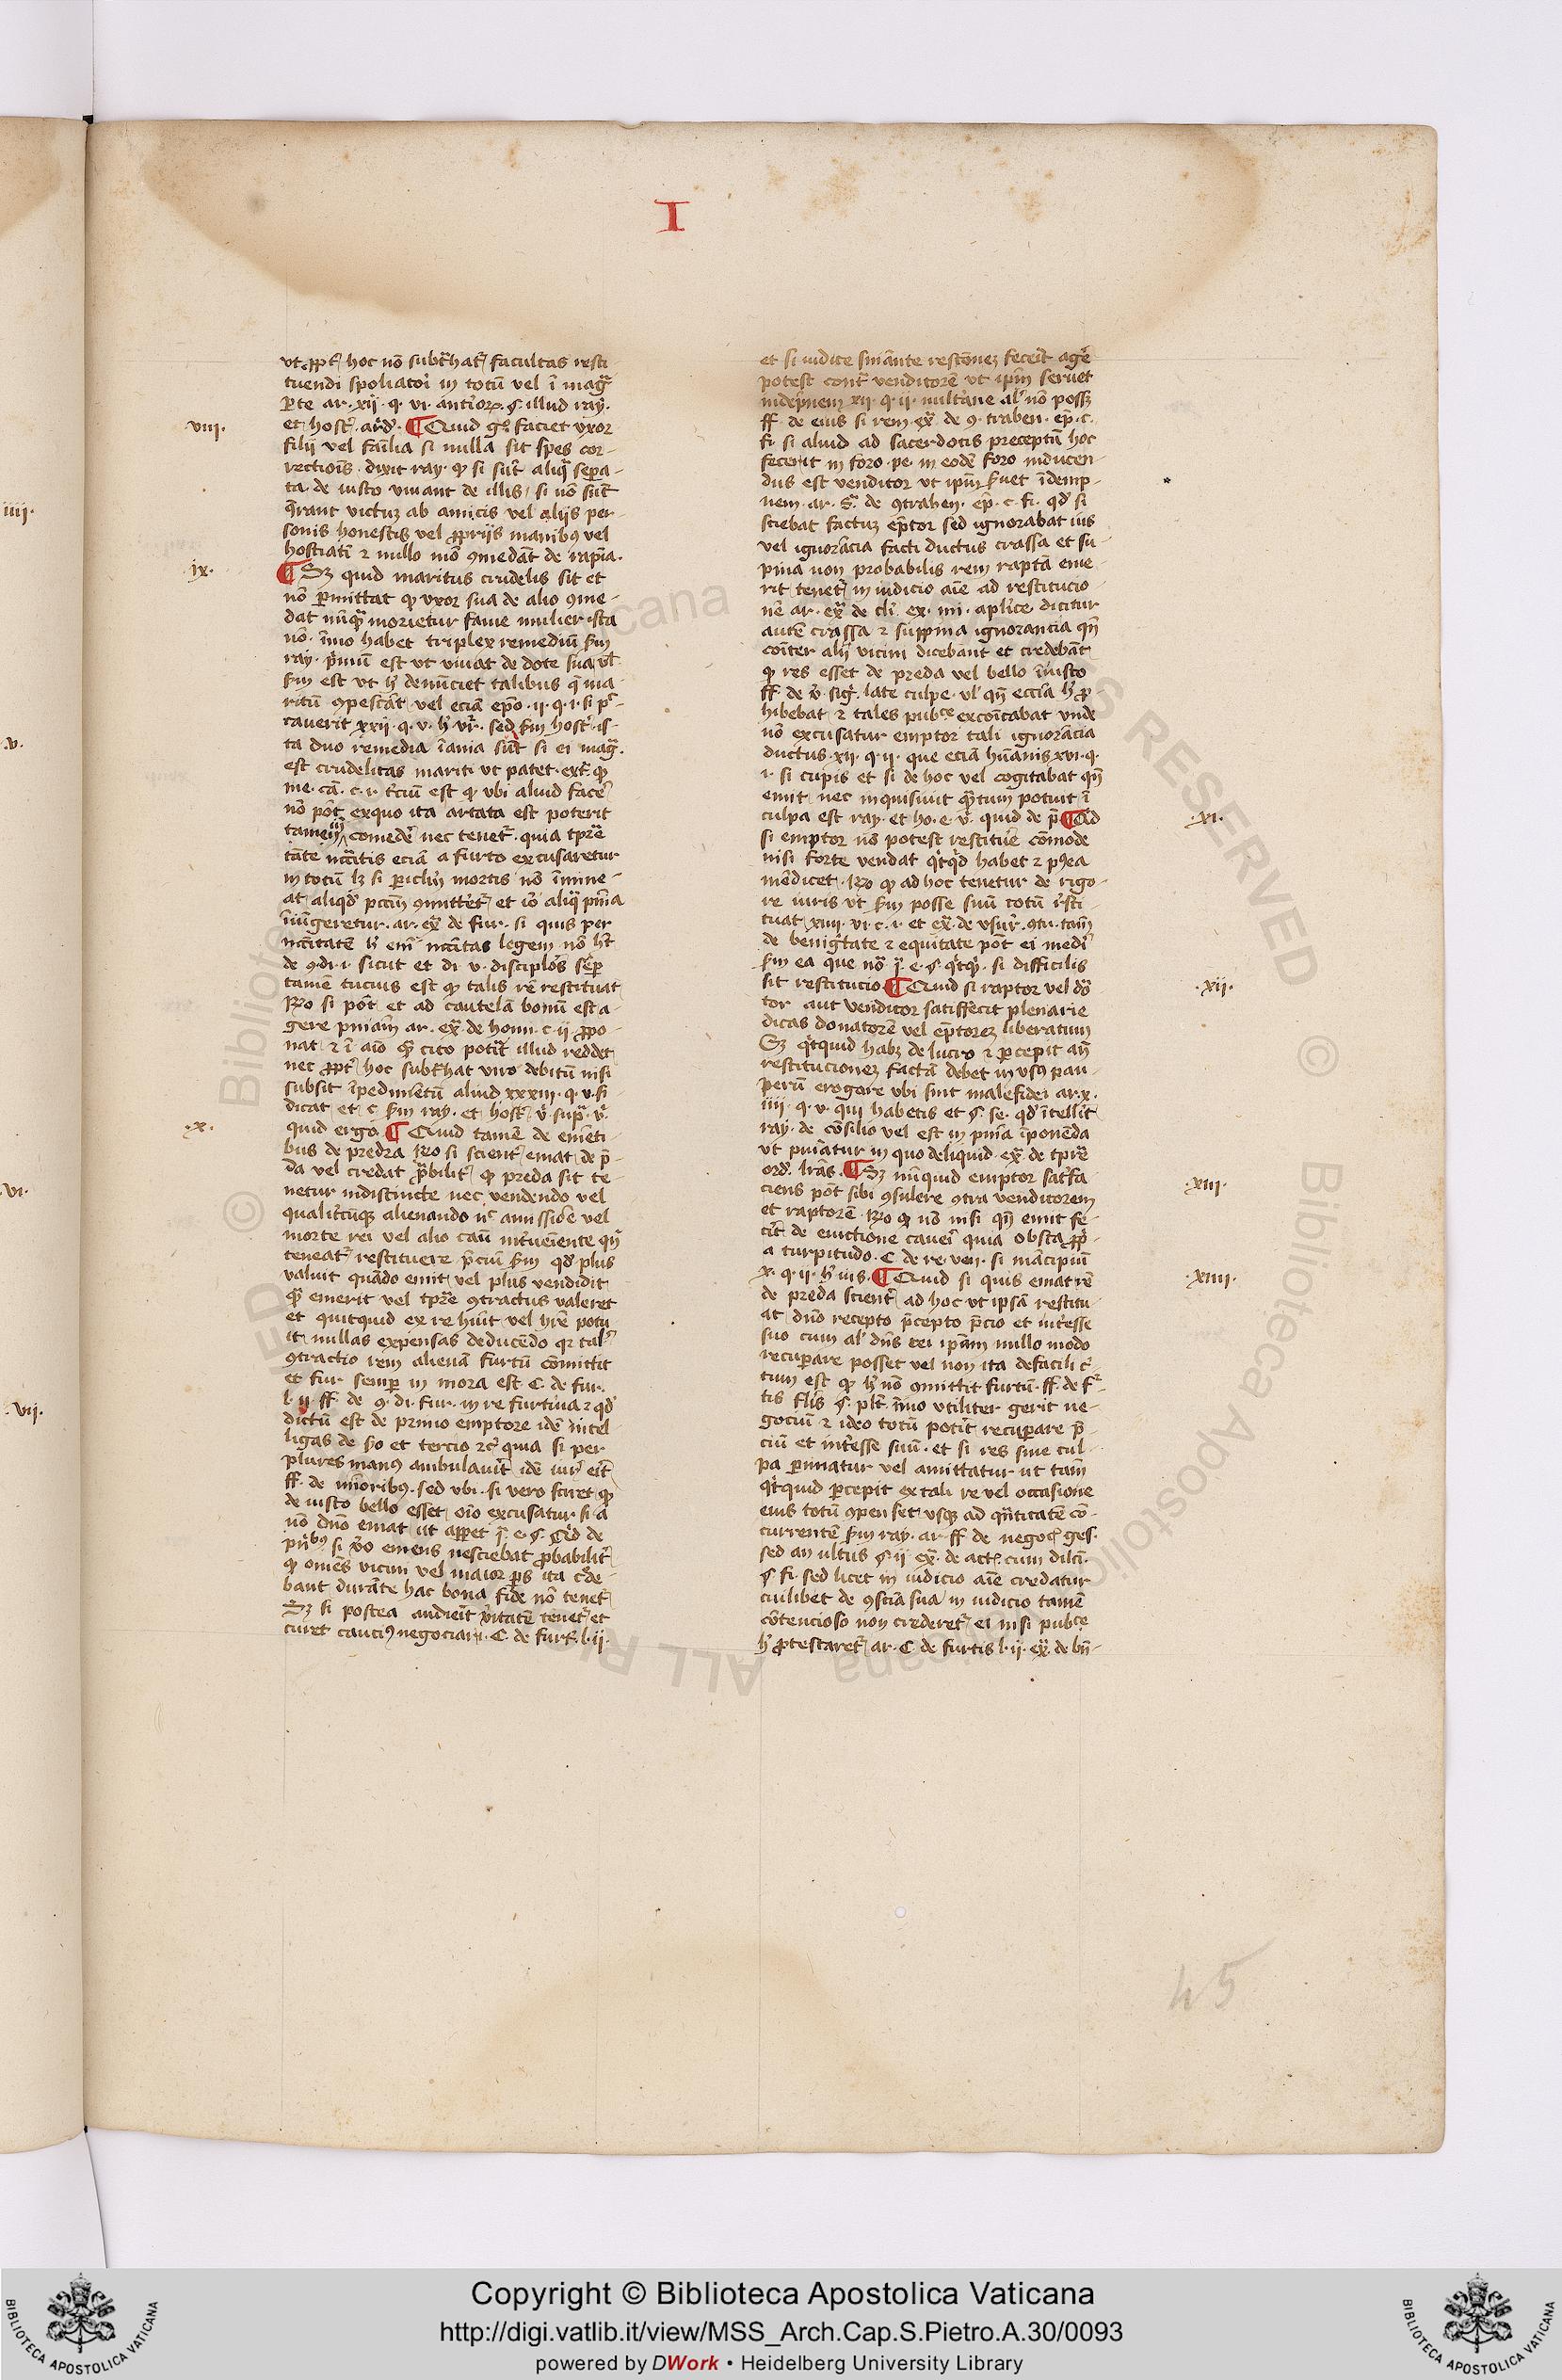 I
ut ꝓpt̉ hoc nō subt̾hat̉ facultas resti-
tuendi spoliatori in totū vel ī mag̾
ꝑte ar. xij. q. vi. illud ray.
et host. Quid faciet vxor
filij vel familia si nulla sit spes cor-
rectiois. dixit ray. ꝙ si sūt aliq̾ sepa-
ta de iusto viuant de illis si nō sūt
q̄rant victuȝ ab amicis vel alijs per-
sonis honestis vel ꝓprijs manibꝰ vel
hostiatī ⁊ nullo mō ꝯmedāt de rapīa.
¶ Sȝ quid maritus crudelis sit et
nō ꝑmittat ꝙ vxor sua de alio ꝯme-
dat nūq̾ morietur fame mulier ista
nō. īmo habet triplex remediū
ray. p̄mū est ut viuat de dote sua vel
est ut denūciet talibus q̄ ma-
ritū ꝯpescāt vel eciā epō. ij. q. i. si
cauerit xxij. q. v. sed host. is-
ta duo remedia īania sūt si ei mag̾.
est crudelitas mariti ut patet ꝙ
me. cā. c. i. t̉ciū est ꝙ vbi aliud face̾
nō pōt exquo ita artata est poterit
tamen comede̾ nec tenet̉. quia tpr̄e
tāte nccītis eciā a furto excusaretur
in totū lȝ si ꝑiclm̄ mortis nō īmine-
at aliqd̾ pctm̄ ꝯmittet̉ et iō aliq̾ pnīa
īiūgeretur. ar. ex̾. de fur. si quis per
nccītatē em̄ nccītas legem nō h̄t
de ꝯ. di. i. sicut et di. v. discipl̄os
tamē tucius est ꝙ talis rē restituat
si pōt et ad cautelā bonū est a-
gere pniam ar. ex̾. de hom. c. ij. ꝓpo-
nat ⁊ ī aīo cito potit̉ illud reddet
nec ꝓpt̉ hoc subt̾hat viro debitū nisi
subsit īpedimētū aliud xxxiii. q. v. si
dicat et c. ray. et host.
quid ergo. ¶ Quid tamē de emēti-
bus de predra si scient̉ emat de p̄-
da vel credat p̾bilit̉ ꝙ preda sit te-
netur indistincte nec vendendo vel
qualit̉cūqȝ alienando amissione vel
morte rei vel alio casu int̉ueniente
teneat̉ restituere p̄ciū qd̾ plus
valuit quādo emit vel plus vendidit
emerit vel tpr̄e ꝯtractus valeret
et quitquid ex re hiūt vel potu-
it nullas expensas deducēdo
ꝯtractio rem alienā furtū cōmittit
et fur semꝑ in mora est C. de fur.
l. ij. ff. de ꝯ. di. fur. in re furtiua ⁊ qd̾
dictū est de primo emptore idē intel-
ligas de et tercio ⁊c̾ quia si per
plures manꝰ ambulauit̉ idē
ff. de mīoribꝰ. sed vbi. si vero sciret ꝙ
de iusto bello esset oīo excusatur si a
nō dn̄o emat ut appet
si emens nesciebat ꝓbabilit̉
ꝙ omēs vicini vel maior ita c̾de-
bant durāte hac bona fide nō tenet̉
Sȝ si postea audierit v̉itatē tenet̉ et
curet cauciꝰ negociari. C. de furt. l. ij.
et si iudice restōneȝ fecerit age̾
potest cont̾ venditorē ut ipm̄ seruet
indēpnem xij. q. ij. al̾ nō posset
ff. de eius si rem. ex̾. de ꝯ. epī. c.
fi. si aliud ad sacerdotis preceptū hoc
fecerit in foro. pe. in eodē foro inducen-
dus est venditor ut ipm̄ īdemp-
nem. ar. de ꝯtrahen. c. fi. qd̾ si
sciebat factuȝ ēptor sed ignorabat ius
vel ignorācia facti ductus crassa et su-
pina non probabilis rem raptā eme-
rit tenet̉ in iudicio aīe ad restitucio-
nē ar. ex̾. de ex. mi. aplīce dicitur
autē crassa ⁊ suppina ignorancia
cōiter alij vicini dicebant et credebāt
ꝙ res esset de preda vel bello īiusto
ff. de sig. late culpe. eccīa
hibebat ⁊ tales excoīcabat vnde
nō excusatur emptor tali ignorācia
ductus. xij. q. ij. que eciā hūanis. xvi. q.
i. si cupis et si de hoc vel cogitabat
emit nec inquisiuit q̄tum potuit ī
culpa est ray. et ho. e. quid de ¶ Qd
si emptor nō potest restitue̾ cōmode
nisi forte vendat habet ⁊ pꝰea
mēdicet ꝙ ad hoc tenetur de rigo-
re iuris ut posse suū totū
tuat xiiii. vi. c. i. et ex̾. de vsur̾. tam̄
de benigītate ⁊ equitate pōt ei medi̾
ea que nō si difficilis
sit restitucio ¶ Quid si raptor vel dō-
tor aut venditor satiffecit plenarie
dicas donatorē vel ēptoreȝ liberatum
Sȝ quitquid habȝ de lucro ⁊ ꝑcepit
restitucioneȝ factā debet in vsꝰ pau-
perū erogare vbi sint malefidei ar. x.
iiii. q. v. qui habetis et se. qd̾ ītellit
ray. de cōsilio vel est in pnīa īponēda
ut puniatur in quo deliquid. ex̾. de tpr̄e
ord. ¶ Sȝ nūnquid emptor satīfa-
ciens pōt sibi ꝯsulere ꝯtra venditorem
et raptorē ꝙ nō nisi emit fe-
cit de euictione caueī quia obsta
a turpitudo. C. de re. ven. si mācipiū
x. q. ij. ¶ Quid si quis emat rē
de preda scient̉ ad hoc ut ipsā restitu-
at dn̄o recepto p̄cepto p̄cio et int̉esse
suo cum al̾ dn̄s rei ipam nullo modo
recuperare posset vel non ita defacili
tum est ꝙ nō ꝯmittit furtū. ff. de
tis īmo utiliter gerit ne-
gociū ⁊ ideo totū potit̉ recuperare p̄-
ciū et int̉esse suū. et si res sine cul-
pa ꝑimatur vel amittatur ut tam̄
quitquid ꝑcepit ex tali re vel occasione
eius totū ꝯpenset vsqȝ ad qn̄titatē cō-
currentē ray. ar. ff. de negoc. ges.
sed an ultus ij. ex̾. de act. cum dilci.
fi. sed licet in iudicio aīe credatur
cuilibet de ꝯsciā sua in iudicio tamē
cōtencioso non crederet̉ ei nisi
ꝓtestaret̉ ar. C. de furtis l. ij. ex̾. de
viii.
ix.
x.
xi.
xii.
xiii.
xiiii.
iiii.
v.
vi.
vii.
45
Copyright © Biblioteca Apostolica Vaticana
http://digi.vatlib.it/view/MSS_Arch.Cap.S.Pietro.A.30/0093
powered by DWork • Heidelberg University Library
BIBLIOTECA APOSTOLICA VATICANA
BIBLIOTECA APOSTOLICA VATICANA